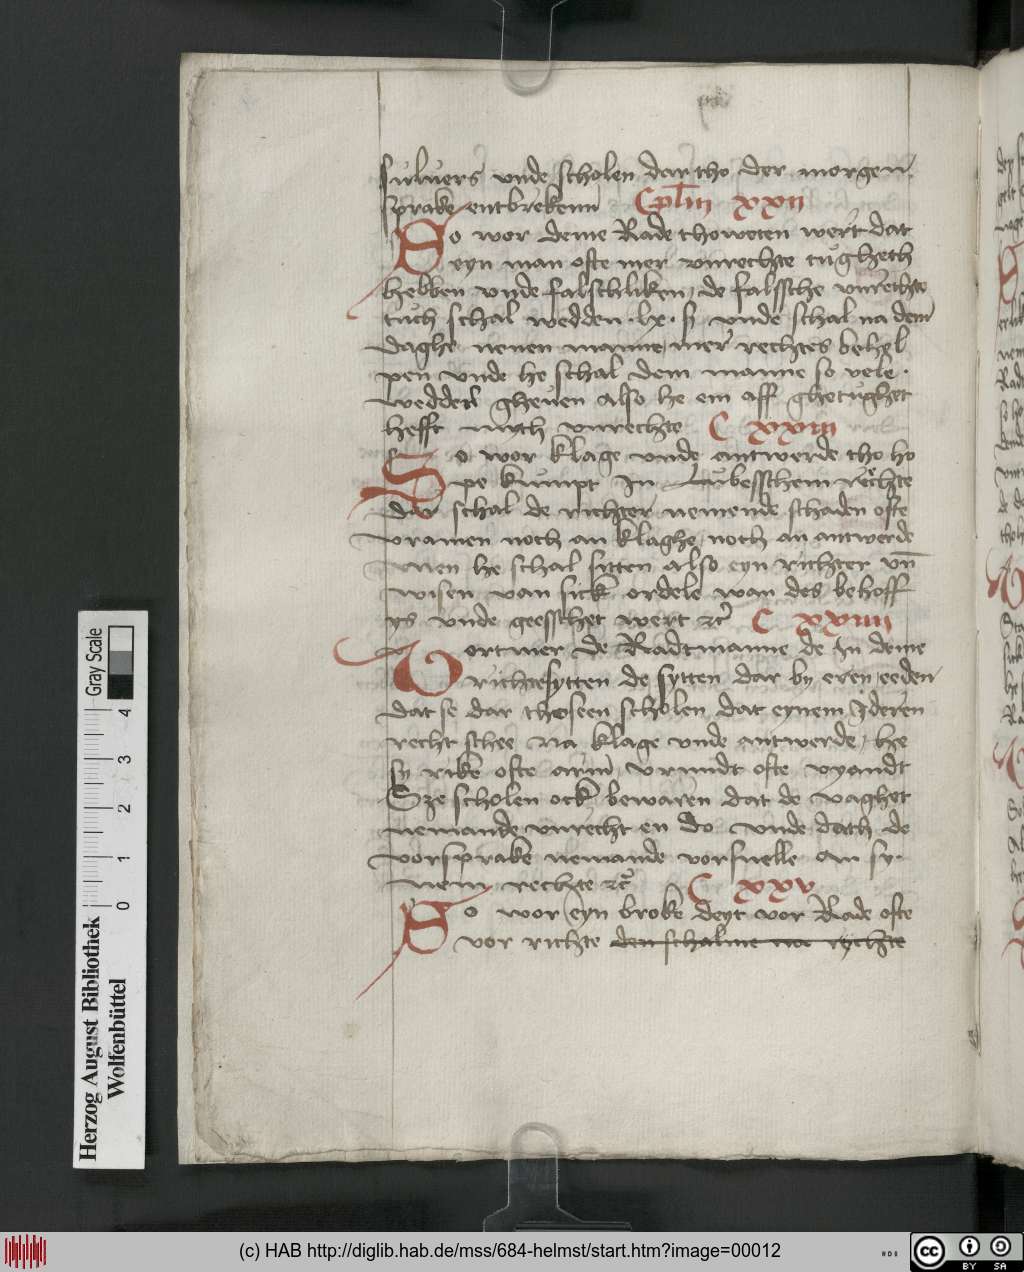 suluers vnde scholen dar tho der morgen
sprake entbrekenn Cplm xxii
So wor deme Rade thoweten wert dat
eyn man ofte mer vnrechte tugheth
hebben vnde falschliken, de falssche vnrechte
tuch schal wedden · lx · ß vnde schal na dem
daghe nenen manne mer rechtes behel
pen vnde he schal dem manne so vele
wedden gheuen also he em aff ghetughet
hefft myth vnrechte C xxiii
So wor klage vnde antwerde tho ho
pe kumpt In Lubesschem rechte
dar schal de richter nemende schaden ofte
vramen noch an klaghe noch an antwerde
men he schal sitten also eyn richter vn̄
wisen van sick ordele wan des behoff
ys vnde geesschet wert ꝛc C xxiiii
Vortmer de Radtmanne de In deme
richte sytten de sytten dar by eren eeden
dat se dar tho seen scholen dat eynem Ideren
recht schee na klage vnde antwerde, he
sy rike ofte arm vrundt ofte vyandt
Sze scholen ock bewaren dat de vaghet
nemande vnrecht en do vnde dath de
vorsprake nemande vorsnelle an sy
nem rechte ꝛc C xxv
So wor eyn broke deyt vor Rade ofte
vor richte den schal me vor rychte
Gray Scale
0 1 2 3 4
Herzog August Bibliothek
Wolfenbüttel
(c) HAB http://diglib.hab.de/mss/684-helmst/start.htm?image=00012
cc BY SA